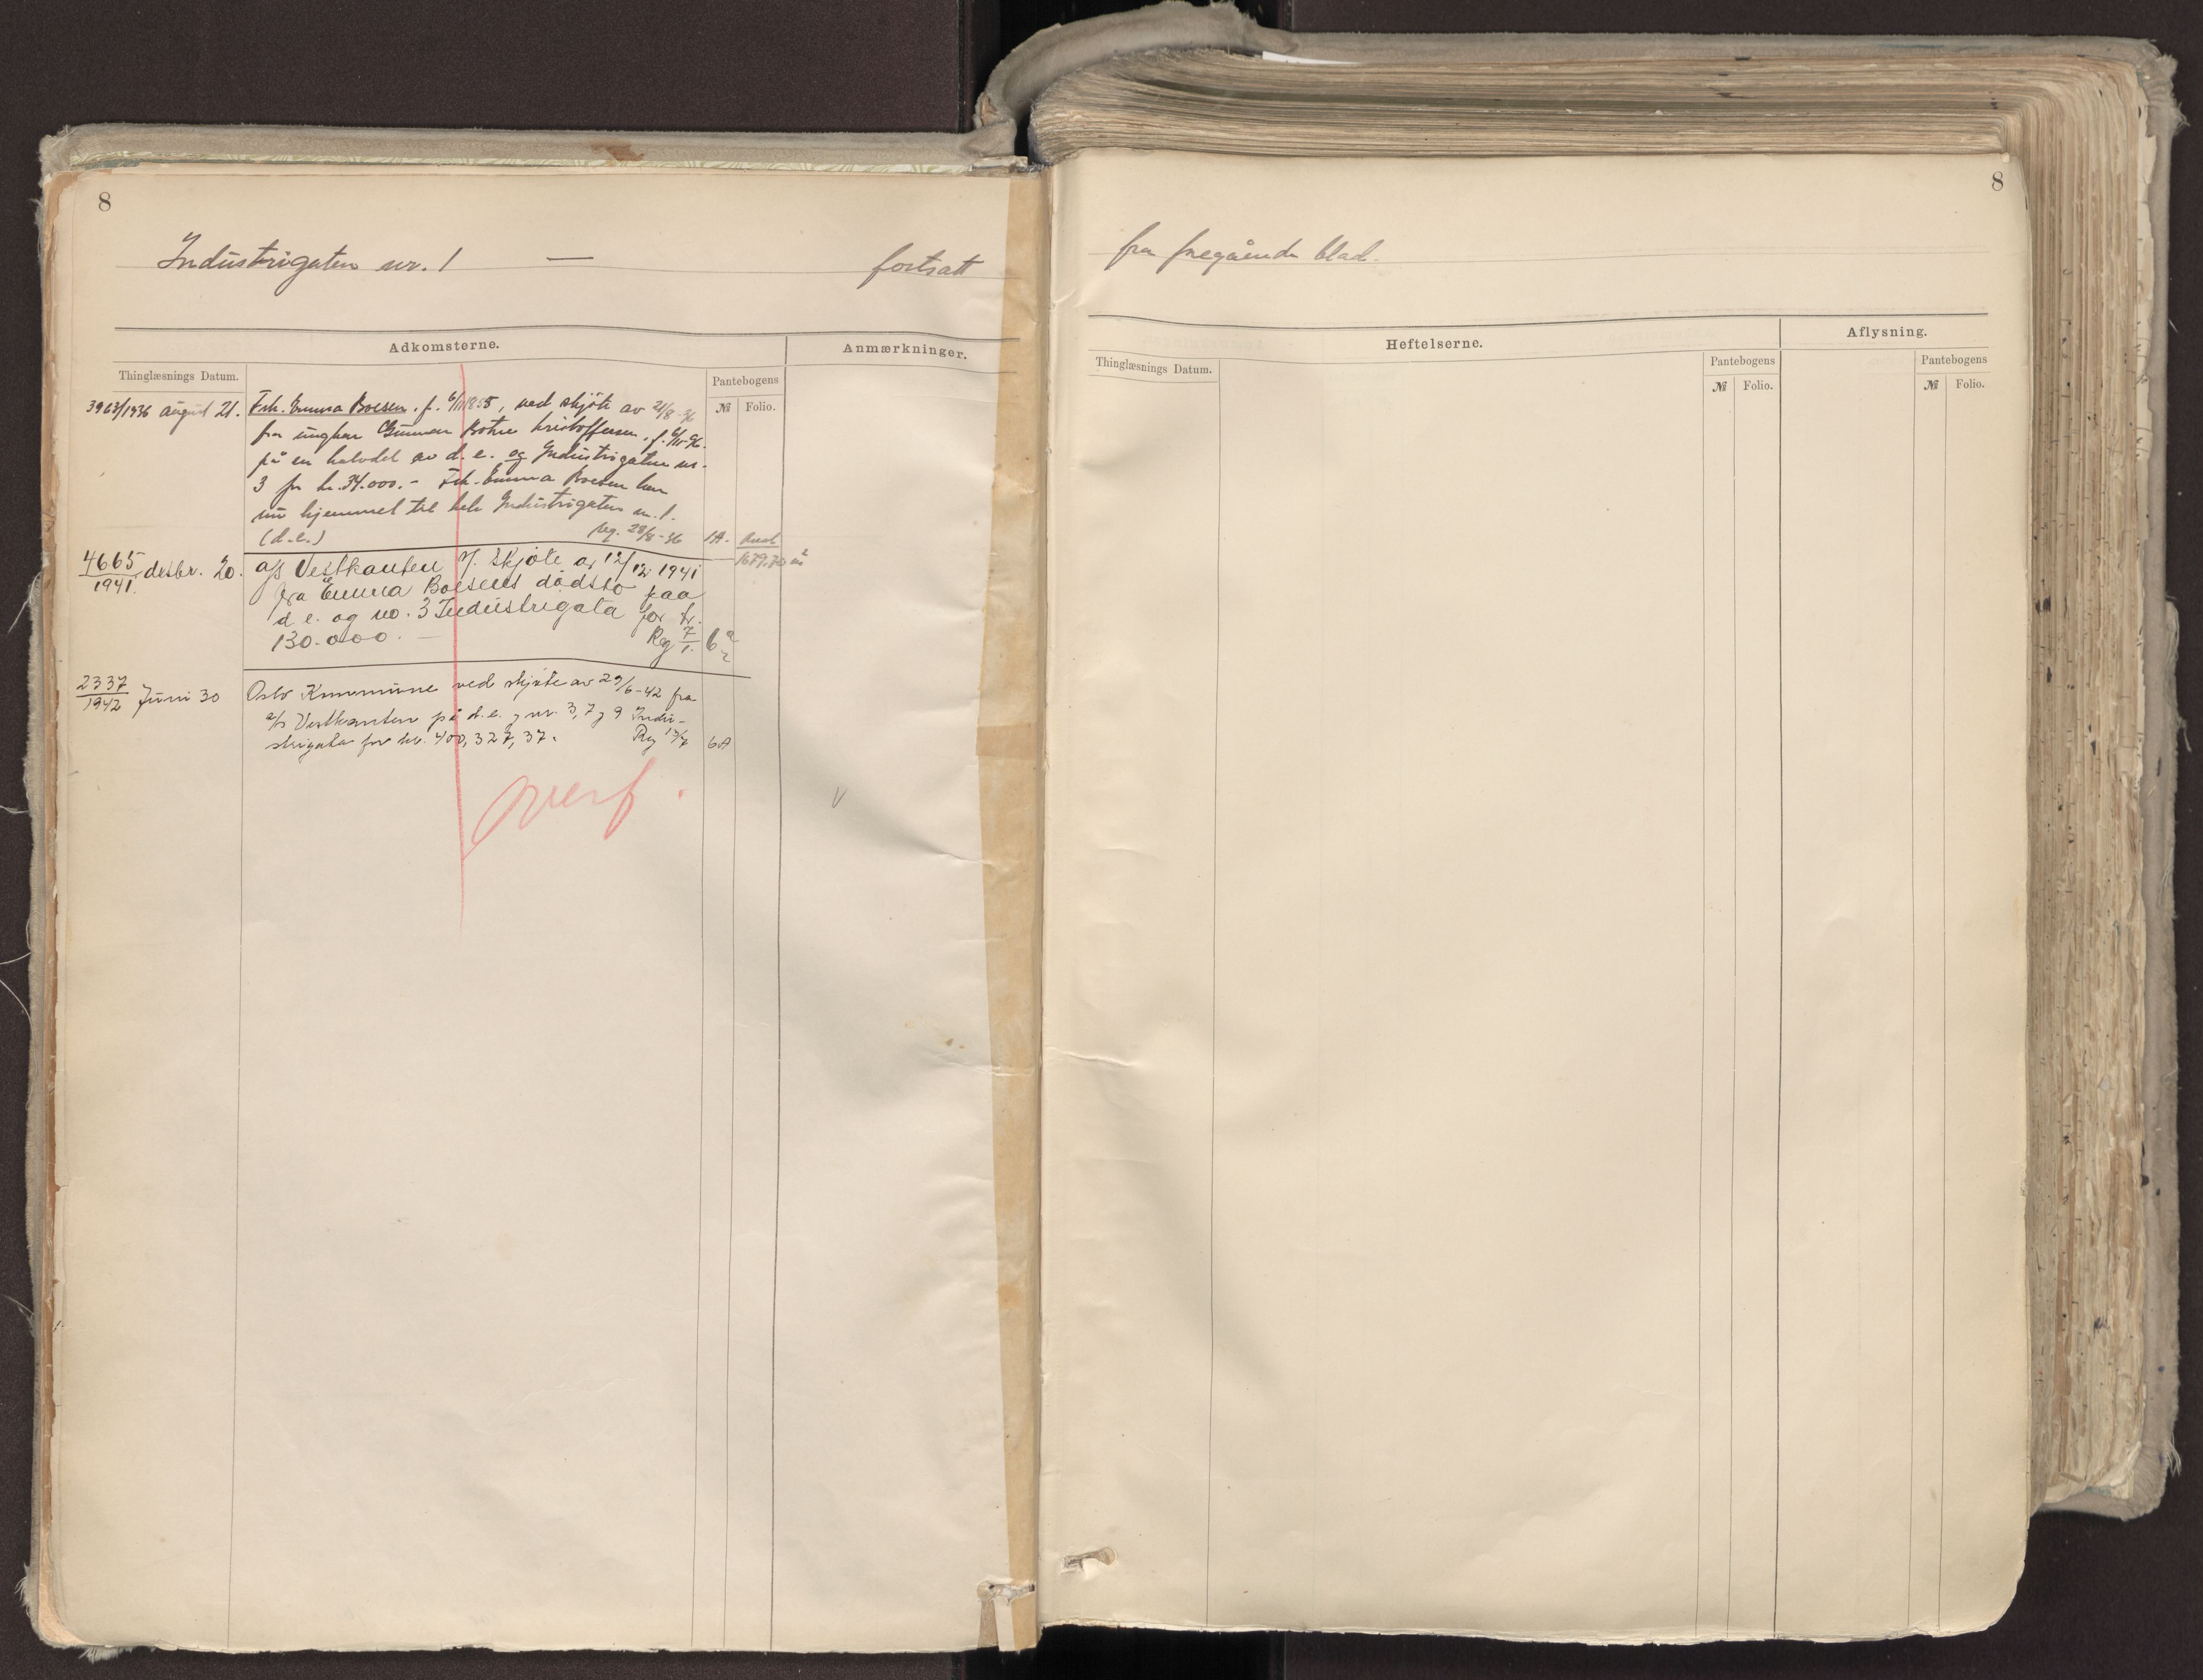 8
Industrigaten nr. 1 — fortsatt
Adkomsterne.
Anmærkninger.
Thinglæsnings Datum.
Pantebogens
№ Folio.
3963/1936 august 21. Frk. Emma Boesen, f. , ved skjöte av 21/8-36
fra ungkar Gunnar Botne Kristoffersen, f.
på en halvdel av d. e. og Industrigaten nr.
3 for kr. 34.000.- Frk. Emma Boesen har
nu hjemmel til hele Industrigaten nr. 1.
(d.e.) reg. 28/8-36 1A.
1679,70 m²
4665/1941. desbr. 20. a/s Vestkanten v/ Skjøte av 12/12 1941
fra Emma Boesens dødsbo paa
d. e. og no. 3 Industrigata for kr.
130.000.— Reg 7/1. 6
2337/1942 Juni 30 Oslo Kommune ved skjøte av 29/6-42 fra
a/s Vestkanten på d.e. og nr. 3, 7 og 9 Indu-
strigata for kr. 400,327,37. Reg 6A
overf.
8
fra foregående blad.
Heftelserne.
Aflysning.
Thinglæsnings Datum.
Pantebogens
№ Folio.
Pantebogens
№ Folio.